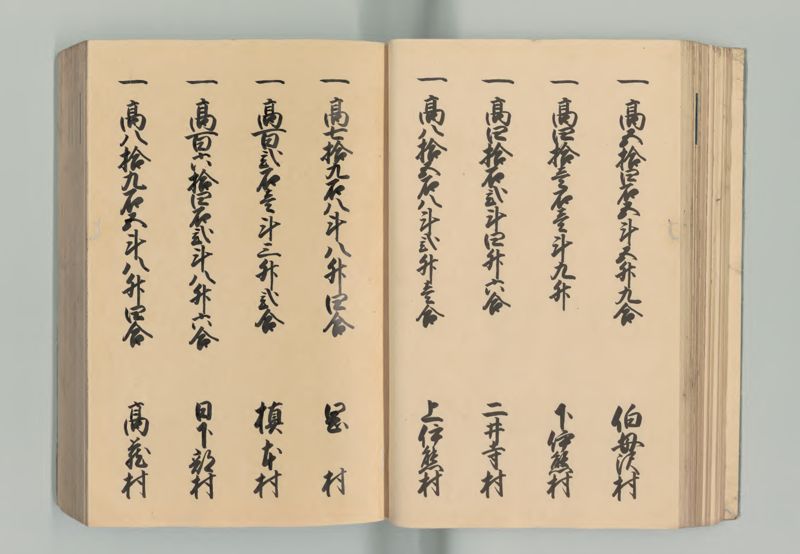 一 高五拾四石五斗五升九合 伯母沢村
一 高四拾壱石壱斗九升 下伊熊村
一 高四拾石弐斗四升六合 二井寺村
一 高八拾五石八斗弐升壱合 上伊熊村
一 高七拾九石八斗八升四合 村
一 高百弐石壱斗三升弐合 槙本村
一 高百六拾四石弐斗八升六合 日下部村
一 高八拾九石五斗八升四合 高蔵村